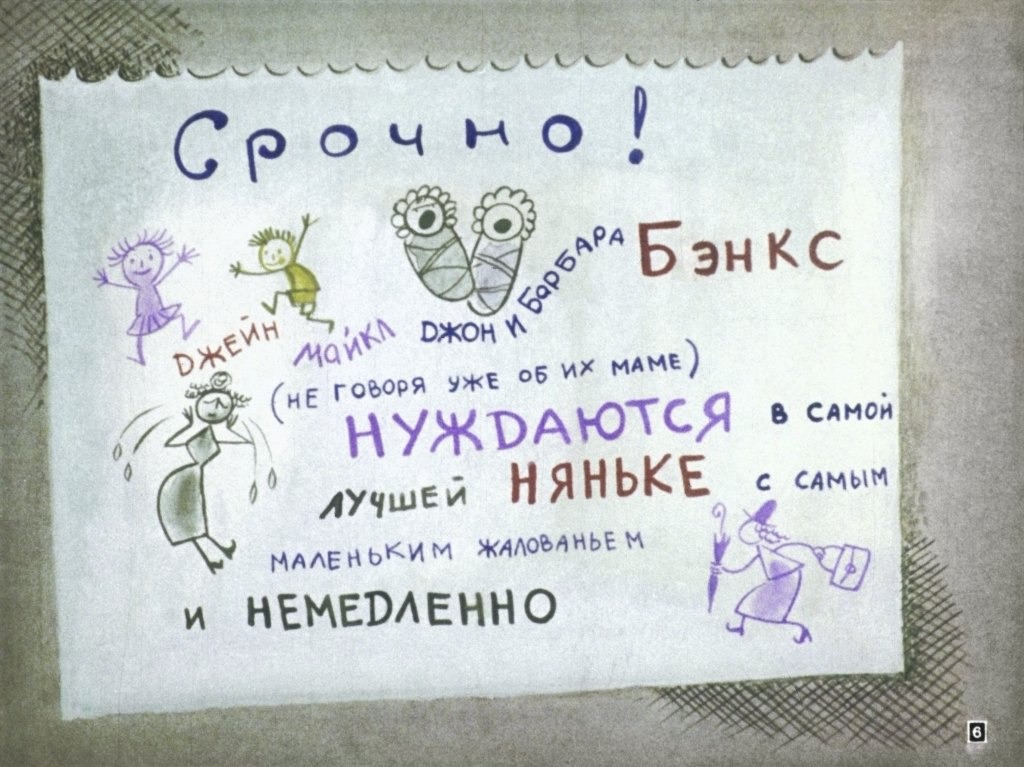 Срочно!
ДЖЕЙН МАЙКЛ ДЖОН И БАРБАРА БЭНКС
(НЕ ГОВОРЯ УЖЕ ОБ ИХ МАМЕ)
НУЖДАЮТСЯ В САМОЙ
ЛУЧШЕЙ НЯНЬКЕ С САМЫМ
МАЛЕНЬКИМ ЖАЛОВАНЬЕМ
И НЕМЕДЛЕННО
6